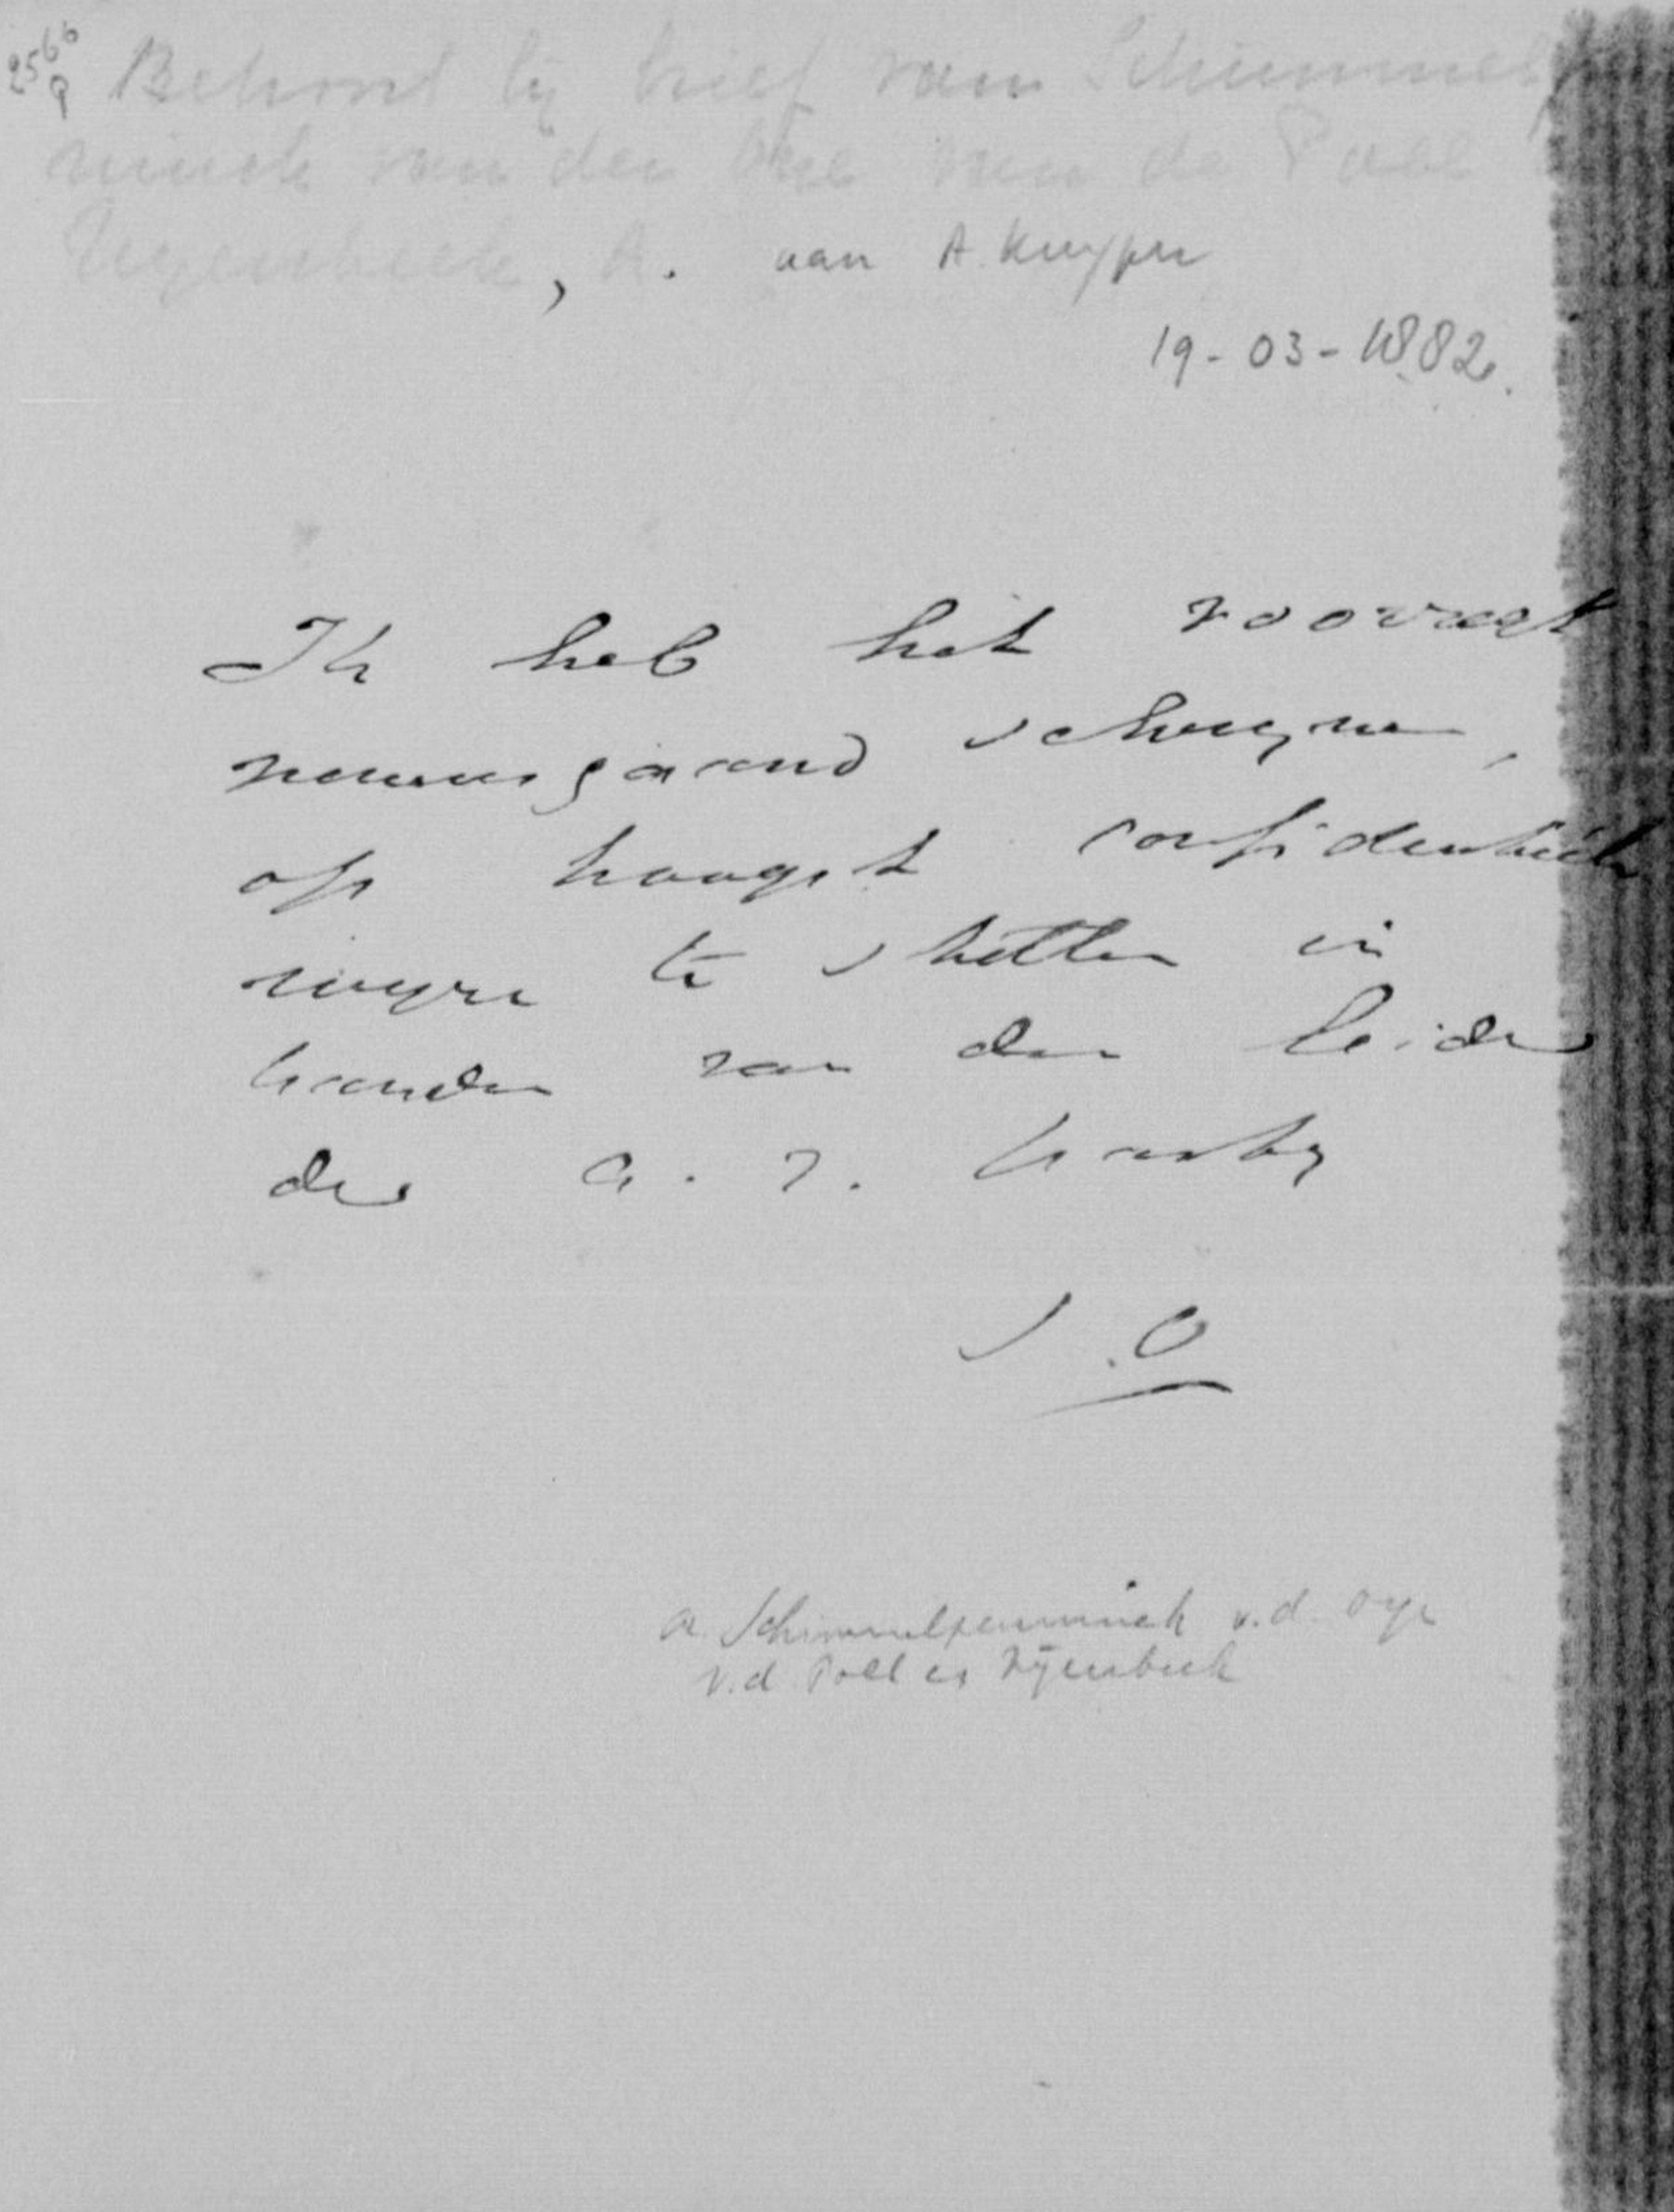 2566
9
Behoort bij brief van Schimmelpen
ninck van der Oye van de Poll
Nyenbeek, A. aan A. Kuyper
19-03-1882.
Ik heb het voorrecht
nevensgaand schrijven,
op hoogst confidentieele
wijze te stellen in
handen van den leider
der a. r. partij
S. O
A. Schimmelpenninck v.d. Oye
v.d. Poll en Nijenbeek